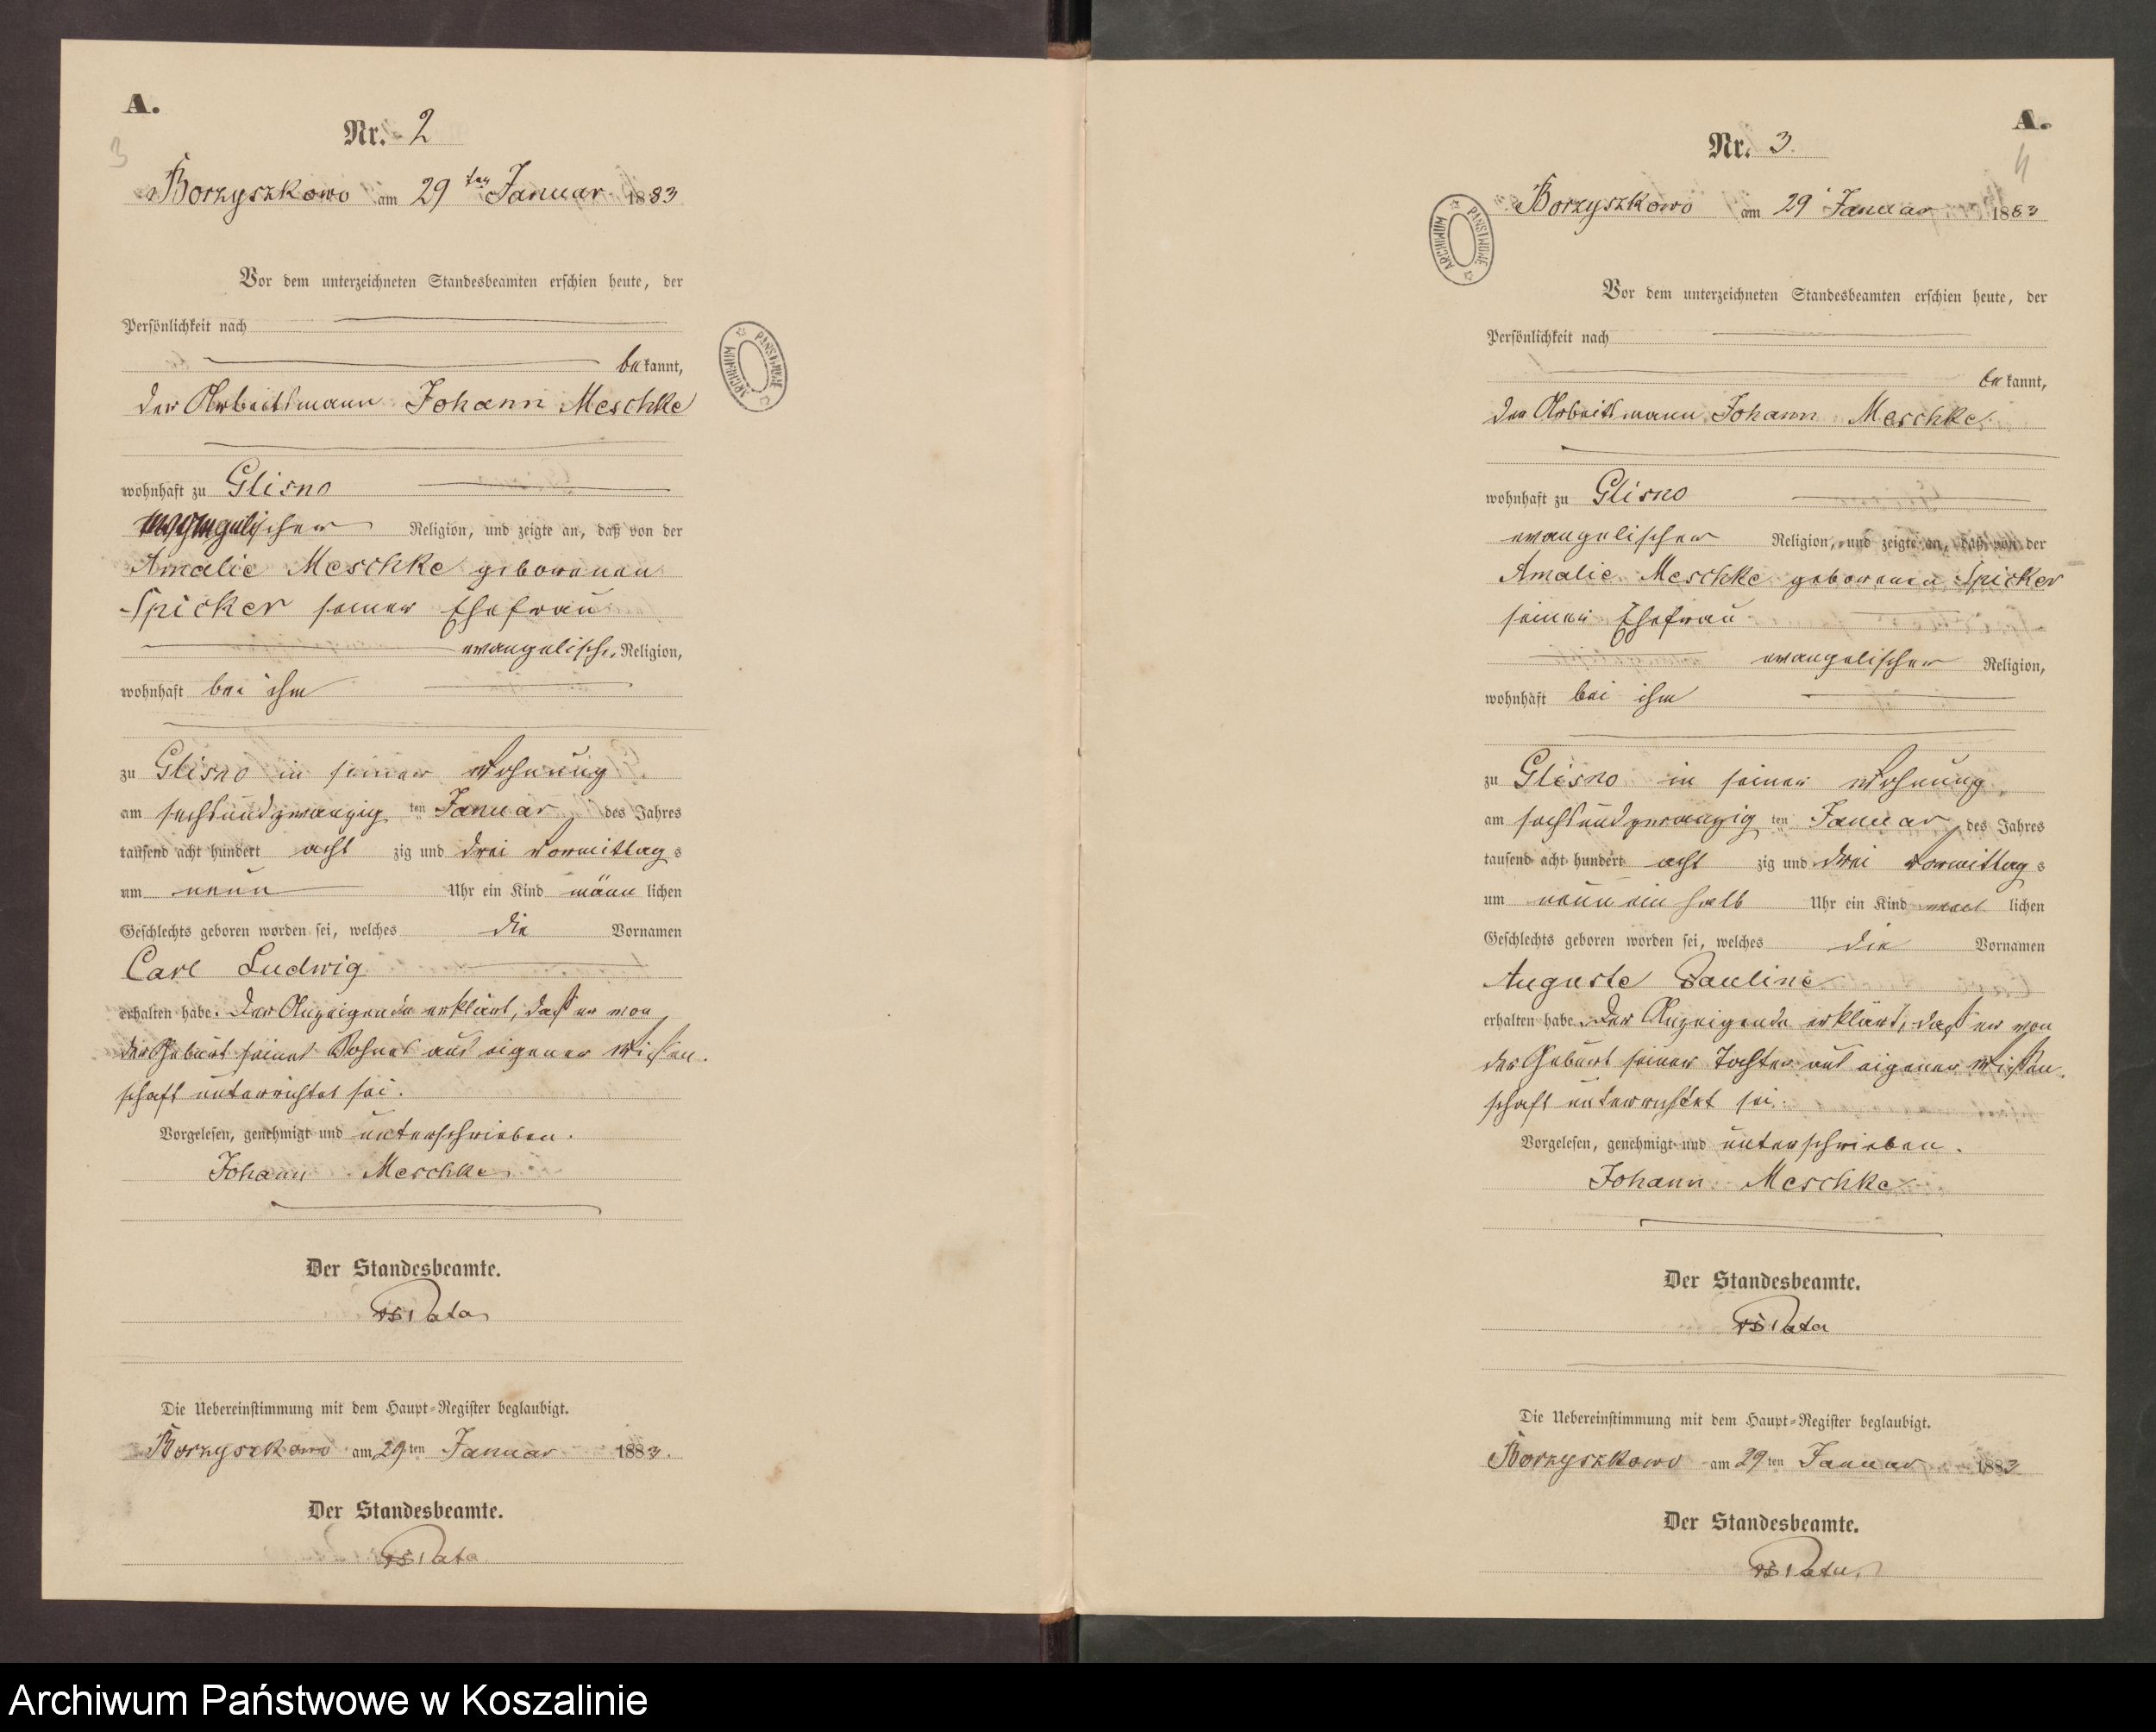 A.
3
Nr. 2
Borzyszkowo am 29ten Januar 1883
Vor dem unterzeichneten Standesbeamten erschien heute, der
Persönlichkeit nach
bekannt,
der Arbeitsmann Johann Meschke
wohnhaft zu Glisno
evangelischer Religion, und zeigte an, daß von der
Amalie Meschke geborenen
Spicker seiner Ehefrau
evangelischer Religion,
wohnhaft bei ihm
zu Glisno in seiner Wohnung
am sechsundzwanzigten Januar des Jahres
tausend acht hundert achtzig und drei Vormittags
um neun Uhr ein Kind männlichen
Geschlechts geboren worden sei, welches die Vornamen
Carl Ludwig
erhalten habe. Der Anzeigende erklärt, daß er von
der Geburt seines Sohnes aus eigener Wissen-
schaft unterrichtet sei.
Vorgelesen, genehmigt und unterschrieben.
Johann Meschke
Der Standesbeamte.
Die Uebereinstimmung mit dem Haupt-Register beglaubigt.
Borzyszkowo am 29ten Januar 1883.
Der Standesbeamte.
ARCHIWUM PAŃSTWOWE
A.
4
Nr. 3.
Borzyszkowo am 29 Januar 1883
ARCHIWUM PAŃSTWOWE
Vor dem unterzeichneten Standesbeamten erschien heute, der
Persönlichkeit nach
bekannt,
der Arbeitsmann Johann Meschke
wohnhaft zu Glisno
evangelischer Religion, und zeigte an, daß von der
Amalie Meschke geborenen Spicker
seiner Ehefrau
evangelischer Religion,
wohnhaft bei ihm
zu Glisno in seiner Wohnung
am sechsundzwanzigten Januar des Jahres
tausend acht hundert achtzig und drei Vormittags
um neun ein halb Uhr ein Kind weiblichen
Geschlechts geboren worden sei, welches die Vornamen
Auguste Pauline
erhalten habe. Der Anzeigende erklärt, daß er von
der Geburt seiner Tochter aus eigener Wissen-
schaft unterrichtet sei.
Vorgelesen, genehmigt und unterschrieben.
Johann Meschke
Der Standesbeamte.
Die Uebereinstimmung mit dem Haupt-Register beglaubigt.
Borzyszkowo am 29ten Januar 1883
Der Standesbeamte.
Archiwum Państwowe w Koszalinie